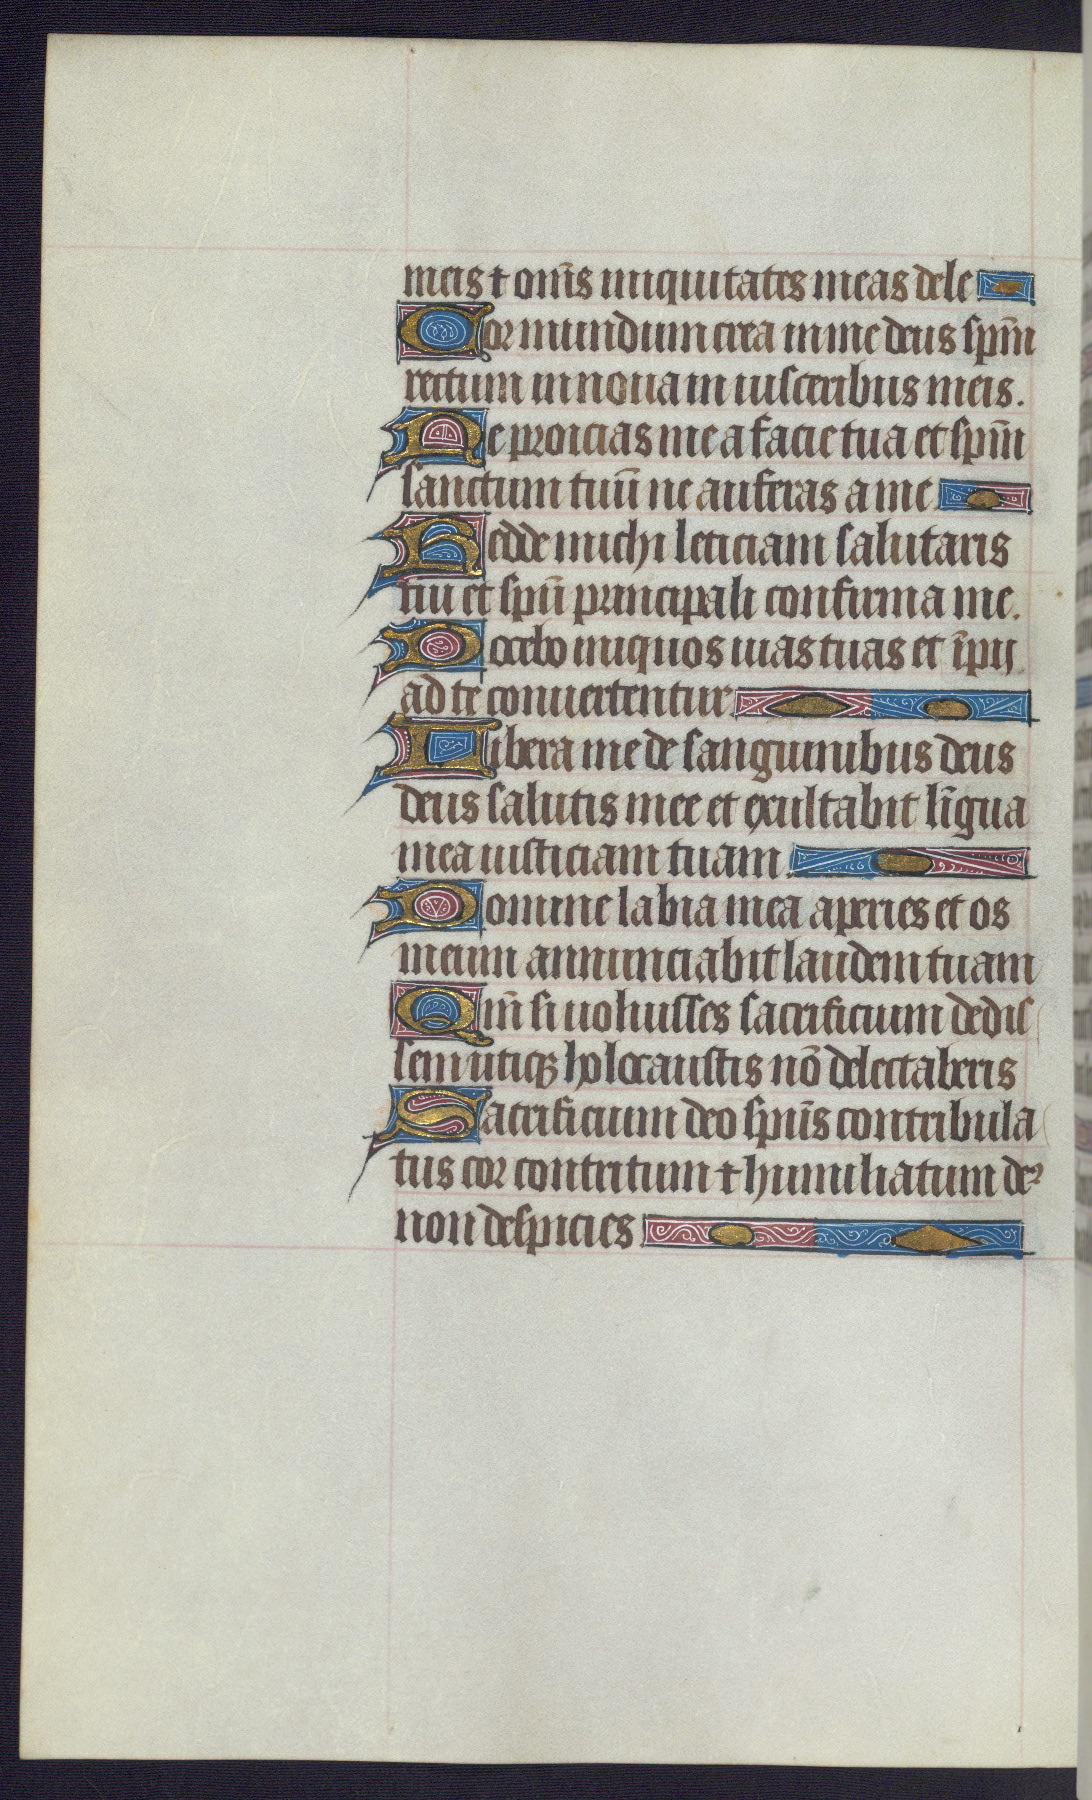 meis ⁊ om̄s iniquitates meas dele
Cor mundum crea in me deus sp̄m
rectum in nouam in uisceribus meis.
Ne proicias me a facie tua et sp̄m
sanctum tuū ne auferas a me
Redde michi leticiam salutaris
tui et sp̄u principali confirma me.
Docebo iniquos uias tuas et īpij
ad te conuertentur
Libera me de sanguinibus deus
deus salutis mee et exultabit līgua
mea iusticiam tuam.
Domine labia mea aperies et os
meum annunciabit laudem tuam
Qm̄ si uoluisses sacrificium dedis
sem utiqꝫ holocaustis nō delectaberis
Sacrificium deo sp̄us contribula
tus cor contritum ⁊ humiliatum de᷒
non despicies